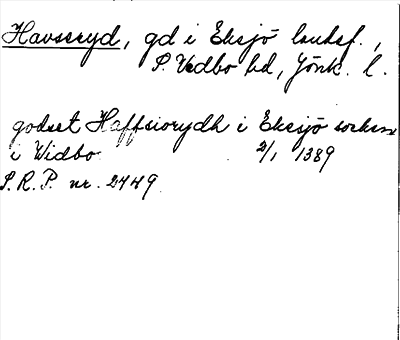 Havsryd, gd i Eksjö landsf.,
S. Vedbo hd, Jönk. l.
godset Haffsiorydh i Eksjö socken
i Widbo 2/1 1389
S.R.P. nr. 2449